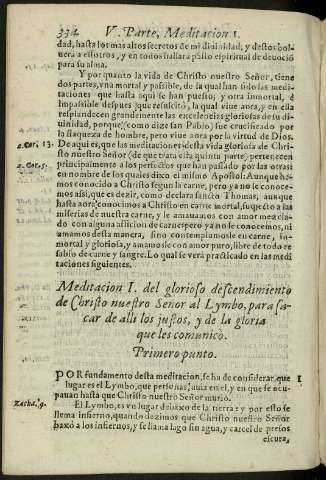 334 V. Parte, Meditacion 1.
dad, hasta los mas altos secretos de mi diuinidad, y destos bol
uera a essotros, y en todos hallara pasto espiritual de deuociõ
para su alma.
Y por quanto la vida de Christo nuestro Señor, tiene
dos partes, vna mortal y passible, de la qual han sido las medi
taciones que hasta aqui se han puesto; y otra inmortal, è
impassible despues que resuscitò, la qual viue aora, y en ella
resplandecen grandemente las excelencias gloriosas de su di
uinidad, porque (como dize san Pablo) fue crucificado por
la flaqueza de hombre, pero viue aora por la virtud de Dios.
2. Cor. 13.
De aqui es, que las meditaciones desta vida gloriosa de Chris
to nuestro Señor (de que trata esta quinta parte) pertenecen
principalmente a los perfectos que han passado por las otras
2. Cor. 5.
en nombre de los quales dixo el mismo Apostol: Aunque he
mos conocido a Christo segun la carne, pero ya no le conoce-
mos assi, que es dezir, como declara sancto Thomas, aunque
hasta aora conocimos a Christo en carne mortal, sugecto a las
miserias de nuestra carne, y le amauamos con amor mezcla-
do con alguna aficion de carne, pero ya no le conocemos, ni
amamos desta manera, sino contemplamosle en carne, in-
mortal y gloriosa, y amamosle con amor puro, libre de todo re
sabio de carne y sangre. Lo qual se verà practicado en las medi
taciones siguientes.
Meditacion I. del glorioso descendimiento
de Christo nuestro Señor al Lymbo, para sa-
car de alli los justos, y de la gloria
que les comunicò.
Primero punto.
POR fundamento desta meditacion, se ha de considerar, que
1
lugar es el Lymbo, que personas auia en el, y en que se ocu-
pauan hasta que Christo nuestro Señor murio.
El Lymbo, es vn lugar debaxo de la tierra: y por esto se
Zacha. 9.
llama infierno, quando dezimos que Christo nuestro Señor
baxò a los infiernos, y se llama lago sin agua, y carcel de presos
escura,